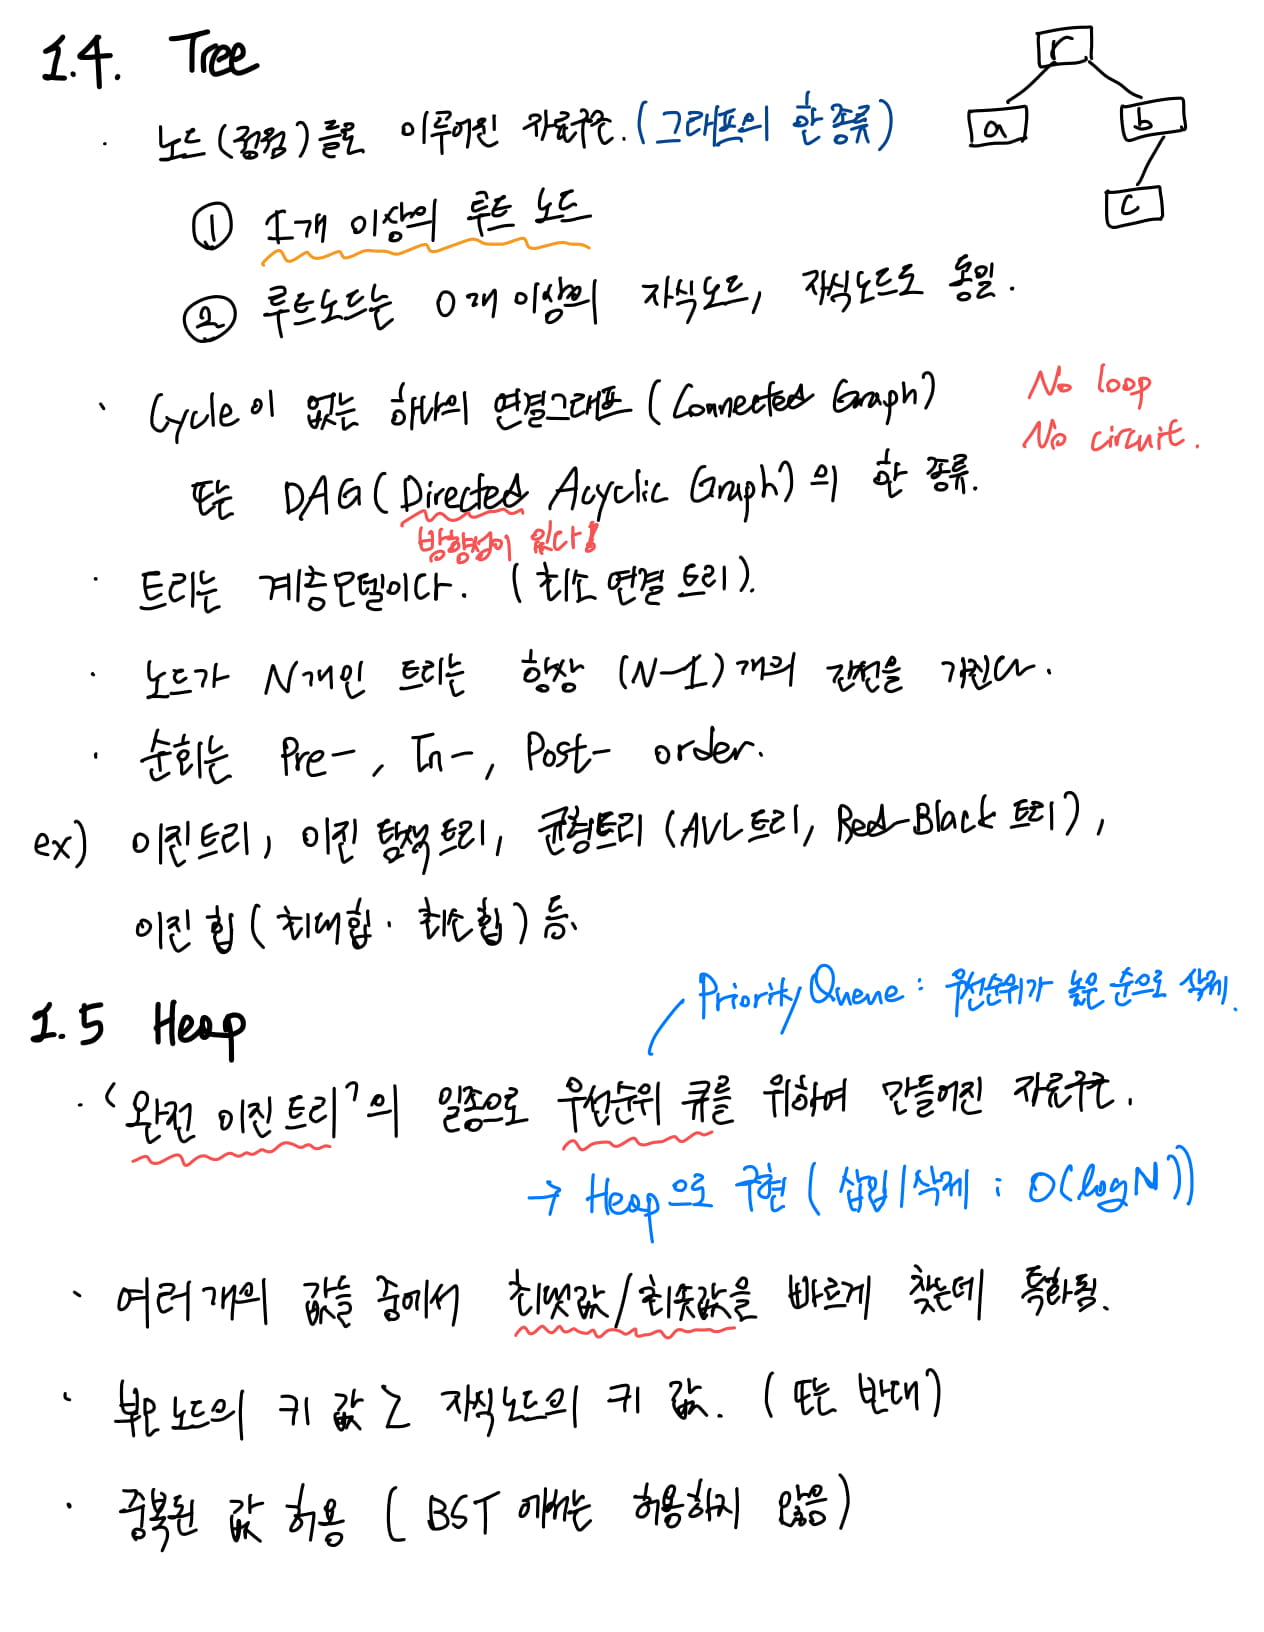 1.4. Tree
r
a
b
c
· 노드(정점)들로 이루어진 자료구조. (그래프의 한 종류)
① 1개 이상의 루트 노드
② 루트노드는 0개 이상의 자식노드, 자식노드도 동일.
· Cycle이 없는 하나의 연결그래프 (Connected Graph)
No loop
No circuit.
또는 DAG (Directed Acyclic Graph)의 한 종류.
방향성이 있다!
· 트리는 계층모델이다. (최소 연결 트리).
· 노드가 N개인 트리는 항상 (N-1)개의 간선을 가진다.
· 순회는 Pre-, In-, Post- order.
ex) 이진트리, 이진 탐색트리, 균형트리 (AVL트리, Red-Black 트리),
이진 힙 (최대힙 · 최소힙) 등.
Priority Queue : 우선순위가 높은 순으로 삭제.
1.5 Heap
· '완전 이진트리'의 일종으로 우선순위 큐를 위하여 만들어진 자료구조.
→ Heap으로 구현 (삽입/삭제 : O(logN))
· 여러개의 값들 중에서 최댓값/최솟값을 빠르게 찾는데 특화됨.
· 부모노드의 키 값 ≥ 자식노드의 키 값. (또는 반대)
· 중복된 값 허용 (BST 에서는 허용하지 않음)